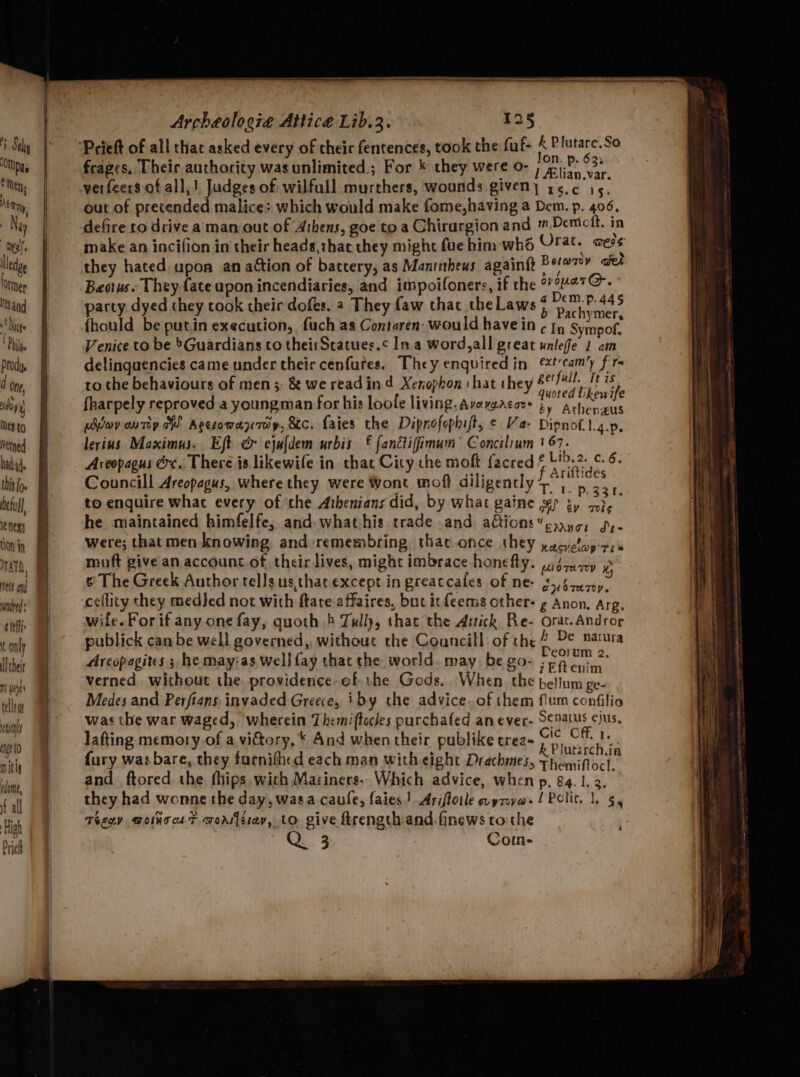 Archæologiæ Atticæ Lib.3. 125
Priest of all that asked every of their sentences, took the suf-
frages, Their authority was unlimited; For k they were o-
verseers of all, l Judges of wilfull murthers, wounds given
out of pretended malice: which would make some, having a
desire to drive a man out of Athens, goe to a Chirurgion and m
make an incision in their heads, that they might sue him who
they hated upon an action of battery, as Mantitheus against
Beotus. They sate upon incendiaries, and impoisoners, if the
party dyed they took their doses. a They saw that the Laws
should be put in execution, such as Contaren would have in
Venice to be b Guardians to their Statues. c In a word, all great
delinquencies came under their censures. They enquired in
to the behaviours of men; & we read in d Xenophon that they
sharply reproved a young man for his loose living.
&c. saies the Dipnosophist, e Va-
lerius Maximus. Est & ejusdem urbis f sanctissimum Concilium
Areopagus &c. There is likewise in that City the most sacred
Councill Areopagus, where they were wont most diligently
to enquire what every of the Athenians did, by what gaine
he maintained himselfe, and what his trade and actions
were; that men knowing and remembring that once they
must give an account of their lives, might imbrace honesty.
g The Greek Author tells us, that except in great cases of ne-
cessity they medled not with state affaires, but it seems other-
wise. For if any one say, quoth h Tully, that the Attick Re-
publick can be well governed, without the Councill of the
Areopagites; he may as well say that the world may be go-
verned without the providence of the Gods. When the
Medes and Persians invaded Greece, i by the advice of them
was the war waged, wherein Themistocles purchased an ever-
lasting memory of a victory, k And when their publike trea-
sury was bare, they furnished each man with eight Drachmes,
and stored the ships with Mariners. Which advice, when
they had wonne the day, was a cause, saies l Aristotle
to give strength and sinews to the
Q 3 Com-
k Plutarc. So
lon. p. 63.
l Ælian. var.
15. c 15.
Dem. p. 406.
m Demost. in
Orat.
a Dem. p. 445
b Pachymer.
c In Sympos.
unlesse I am
quoted likewise
by Athenæus
Dipnos. l.4. p.
167.
e Lib. 2. c. 6.
f Aristides
T. 1. p. 331.
g Anon. Arg.
Orat. Andror
h De natura
Deorum 2.
i Est enim
bellum ge-
stum consilio
Senatus ejus.
Cic Off. 1.
k Plutarch. in
Themistocl.
p. 84. l. 3.
l Polit. l. 5,